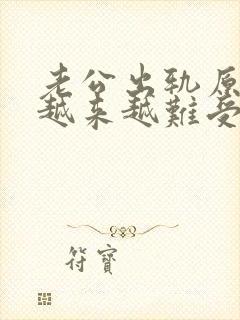 老公出轨原
越来越難受
符寶